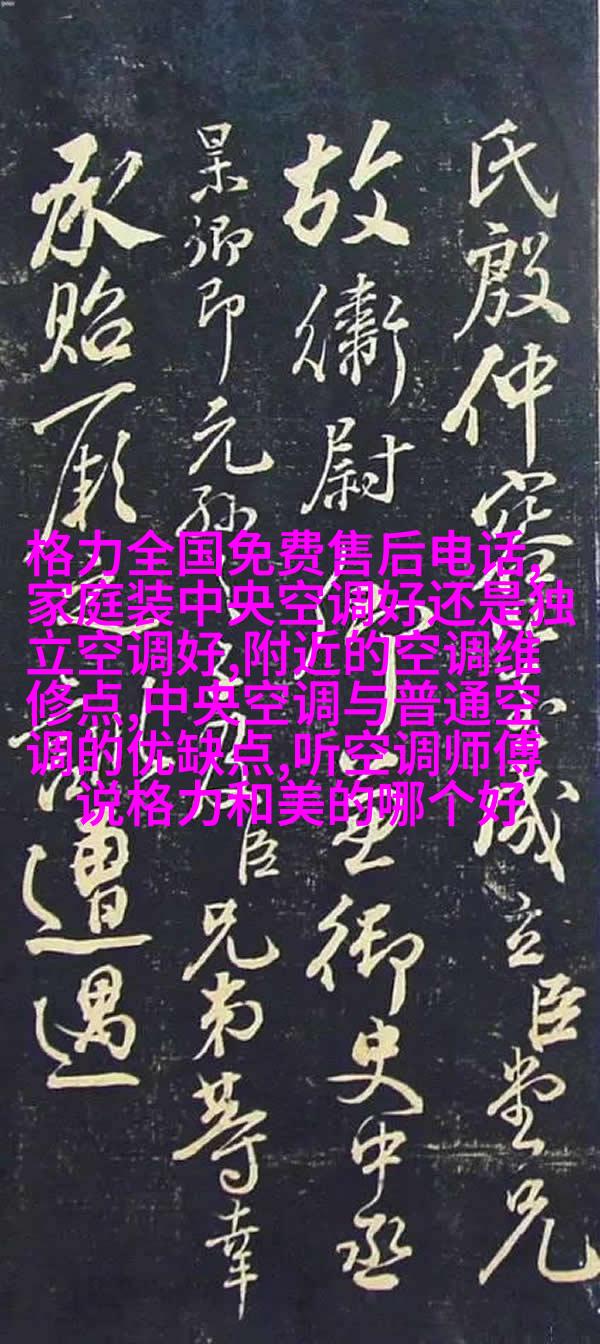 氏殷仲容成立臣堂兄
故衛尉卿兼御史中丞
杲卿即元孫男臣兄弟等幸
承貽厥訓遭遇
格力全国免费售后电话,
家庭装中央空调好还是独
立空调好,附近的空调维
修点,中央空调与普通空
调的优缺点,听空调师傅
说格力和美的哪个好